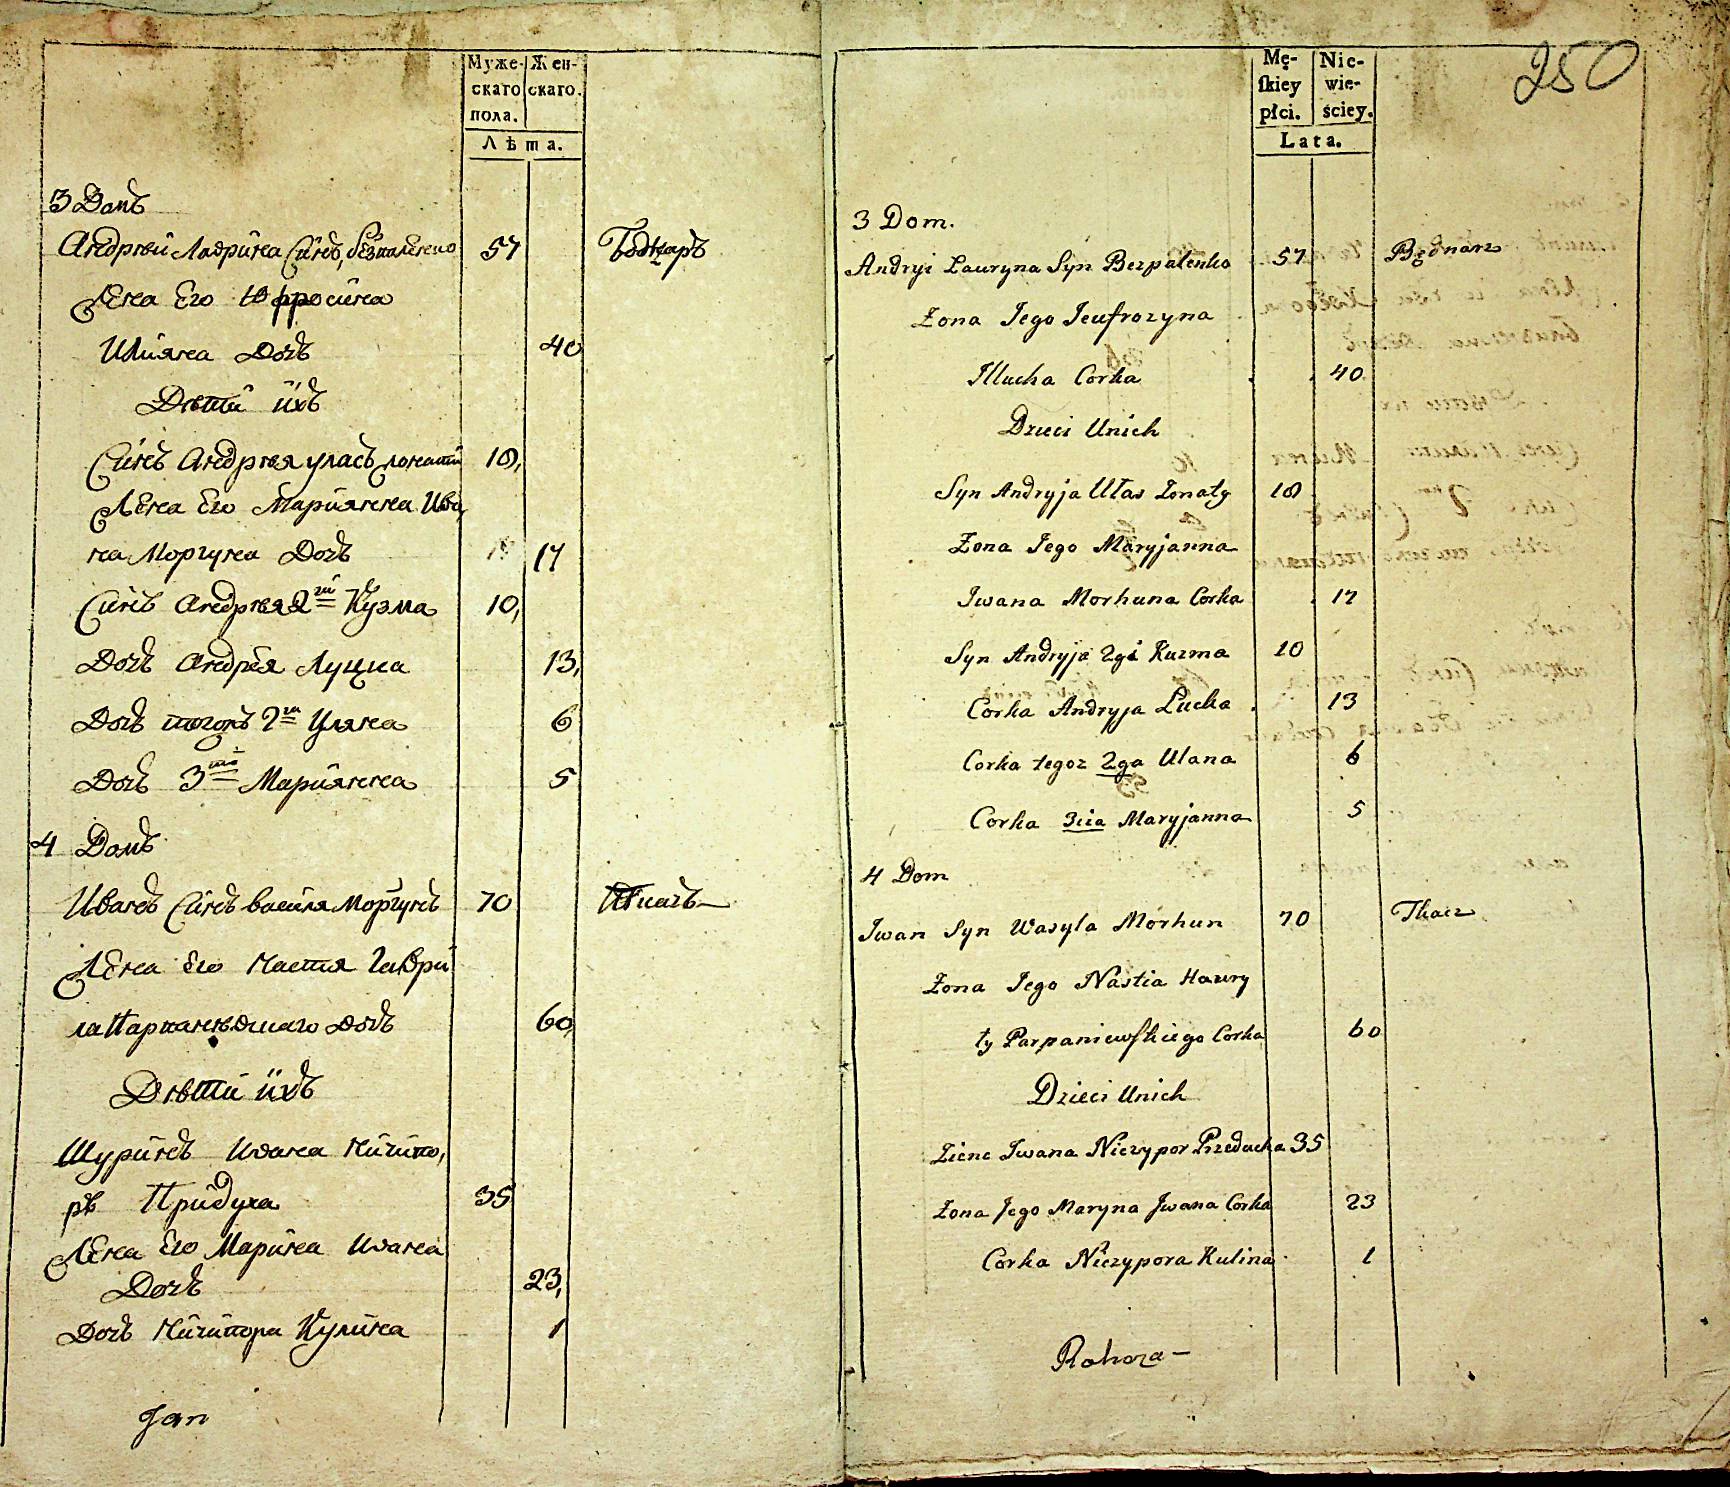 Муже- Жен-
скаго скаго.
пола.
Лѣта.
3 Домъ
Андрѣй Лаврина Синъ, безпаленко 57 Бодн҄аръ
Жена Его Юфросина
Илияна Дочъ 40
Дѣти ихъ
Синъ Андрѣя уласъ, жонатий 18,
Жена Его Мариянна Ива,
на Моргуна Дочъ 17
Синъ Андрѣя 2гий Кузма 10,
Дочъ Андрея Луцка 13,
Дочъ тогожъ 2га Уляна 6
Дочъ 3тяя Мариянна 5
4 Домъ
Иванъ Синъ василя Моргунъ 70 Ткачъ
Жена Его Настя Гаври
ла Парпанѣвскаго Дочъ 60,
Дѣти ихъ
Шуринъ Ивана Ничипо,
ръ Придуха 35
Жена Его Марина Ивана
Дочъ 23,
Дочъ Ничипора Кулина 1
Jan
250
Mę- Nie-
ſkiey wie-
płci. ściey.
Lata.
3 Dom.
Andryi Lauryna Syn Bezpalenko 57 Bednarz
Zona Jego Jeufrozyna
Illucha Corka 40
Dzieci Unich
Syn Andryja Ułas Zonaty 18
Zona Jego Maryjanna
Jwana Morhuna Corka 17
Syn Andryja 2gi Kuzma 10
Corka Andryja Łucka 13
Corka tegoz 2ga Ulana 6
Corka 3cia Maryjanna 5
4 Dom
Jwan Syn Wasyla Morhun 70 Tkacz
Zona Jego Nastia Hawry
ły Parpaniewſkiego Corka 60
Dzieci Unich
Ziene Jwana Niczypor Przeducha 35
Zona Jego Maryna Jwana Corka 23
Corka Niczypora Kulina 1
Rohoza —